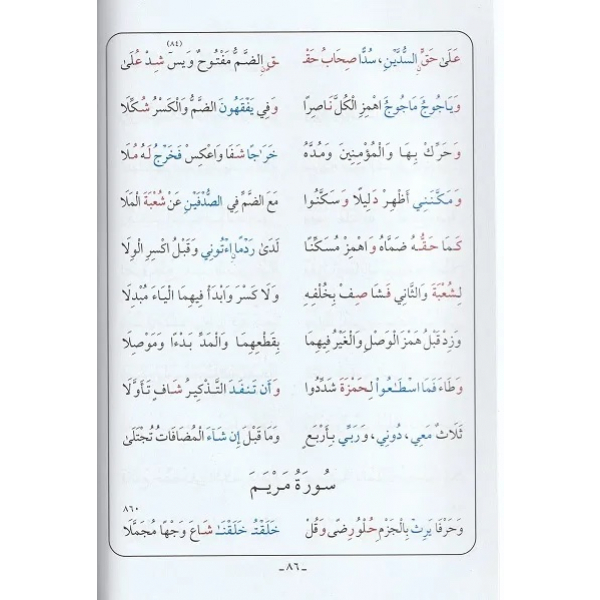 (٨٤)
عَلَىٰ حَقٍّ السُّدَّيْنِ، سُدًّا صِحَابُ حَقْـ ـقٍ الضَّمُّ مَفْتُوحٌ وَيٰسٓ شِدْ عُلَىٰ
وَيَاجُوجَ مَاجُوجَ اهْمِزِ الْكُلَّ نَاصِرًا وَفِي يَفْقَهُونَ الضَّمُّ وَالْكَسْرُ شُكِّلَا
وَحَرِّكْ بِهَا وَالْمُؤْمِنِينَ وَمُدَّهُ خَرَاجًا شَفَا وَاعْكِسْ فَخَرْجُ لَهُ مُلَا
وَمَكَّنَنِي أَظْهِرْ دَلِيلًا وَسَكَّنُوا مَعَ الضَّمِّ فِي الصُّدْفَيْنِ عَنْ شُعْبَةَ الْمَلَا
كَمَا حَقُّهُ ضَمَّاهُ وَاهْمِزْ مُسَكِّنًا لَدَىٰ رَدْمًا ٱءْتُونِي وَقَبْلُ اكْسِرِ الْوِلَا
لِشُعْبَةَ وَالثَّانِي فَشَا صِفْ بِخُلْفِهِ وَلَا كَسْرَ وَابْدَأْ فِيهِمَا الْيَاءَ مُبْدِلَا
وَزِدْ قَبْلُ هَمْزَ الْوَصْلِ وَالْغَيْرُ فِيهِمَا بِقَطْعِهِمَا وَالْمَدِّ بَدْءًا وَمَوْصِلَا
وَطَاءَ فَمَا اسْطَاعُوا لِحَمْزَةَ شَدِّدُوا وَأَن تَنفَدَ التَّذْكِيرُ شَافٍ تَأَوَّلَا
ثَلَاثٌ مَعِي، دُونِي، وَرَبِّي بِأَرْبَعٍ وَمَا قَبْلَ إِن شَاءَ الْمُضَافَاتُ تُجْتَلَىٰ
سُورَةُ مَرْيَمَ
٨٦٠
وَحَرْفَا يَرِثْ بِالْجَزْمِ حُلْوُ رِضًى وَقُلْ خَلَقْتُ خَلَقْنَا شَاعَ وَجْهًا مُجَمَّلَا
ـ٨٦ـ